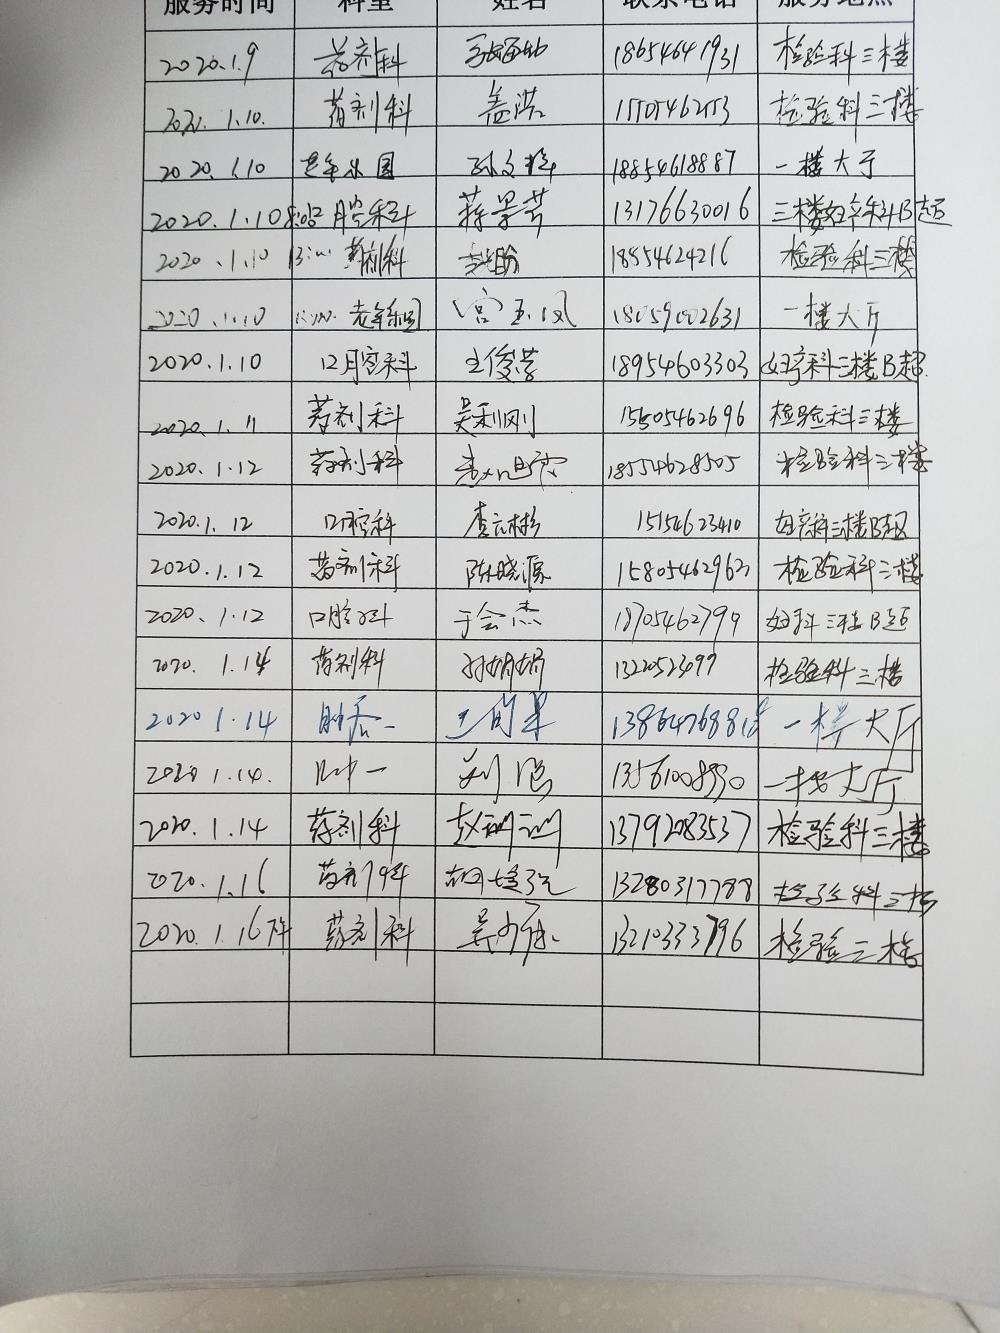 服务时间 科室 姓名 联系电话 服务地点
2020.1.9 药剂科 18654641931 检验科三楼
2020.1.10. 药剂科 盖洪 检验科三楼
2020.1.10 老年乐园 孙文 18854618887 一楼大厅
2020.1.10 口腔科 蒋景芳 13176630016 三楼妇产科B超
2020.1.10 药剂科 18554624216 检验科三楼
2020.1.10 老年乐园 宫玉凤 18059002631 一楼大厅
2020.1.10 口腔科 王俊营 18954603303 妇产科三楼B超
2020.1.11 药剂科 吴利刚 15505462696 检验科三楼
2020.1.12 药剂科 18554628505 检验科三楼
2020.1.12 口腔科 李立彬 15154623410 妇产科三楼B超
2020.1.12 药剂科 陈晓源 15805462962 检验科三楼
2020.1.12 口腔科 于会杰 18705462799 妇科三楼B超
2020.1.14 药剂科 孙娟娟 13220523997 检验科三楼
2020 1.14 13864768818 一楼大厅
2020.1.14. 刘 13561008990 一楼大厅
2020.1.14 药剂科 13792083537 检验科三楼
2020.1.16 药剂科 胡 13280317788 检验科三楼
2020.1.16下午 药剂科 吴 13210333796 检验三楼